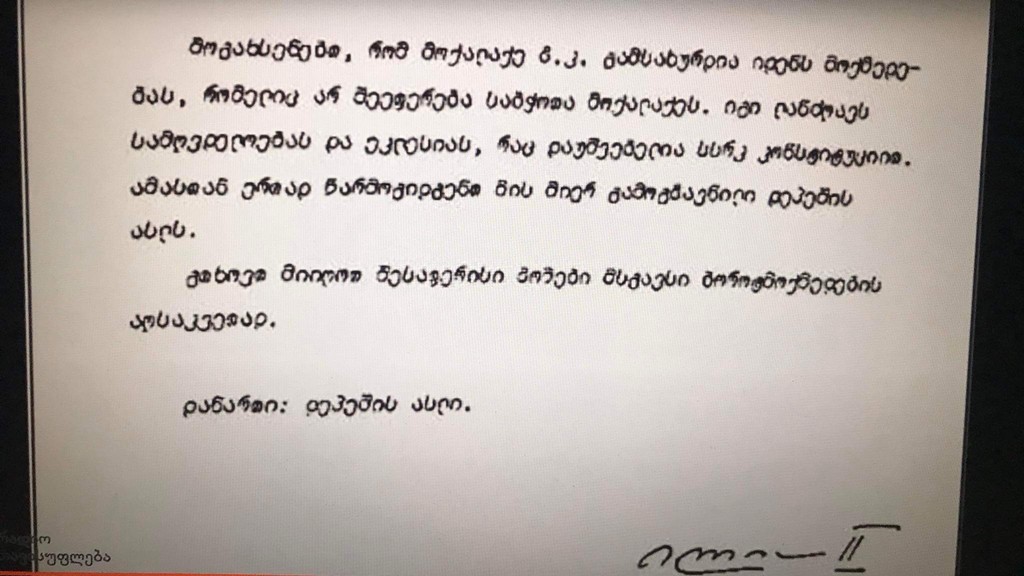 მოგახსენებთ, რომ მოქალაქე ზ.კ. გამსახურდია იდენს მოქმედე-
ბას, რომელიც არ შეეფერება საბჭოთა მოქალაქეს. იგი ლანძღავს
სამღვდელოებას და ეკლესიას, რაც დაუშვებელია სსრკ კონსტიტუციით.
ამასთან ერთად წარმოგიდგენთ მის მიერ გამოგზავნილი დეპეშის
ასლს.
გთხოვთ მიიღოთ შესაფერისი ზომები მსგავსი ბოროტმოქმედების
აღსაკვეთად.
დანართი: დეპეშის ასლი.
ილია II
თავისუფლება